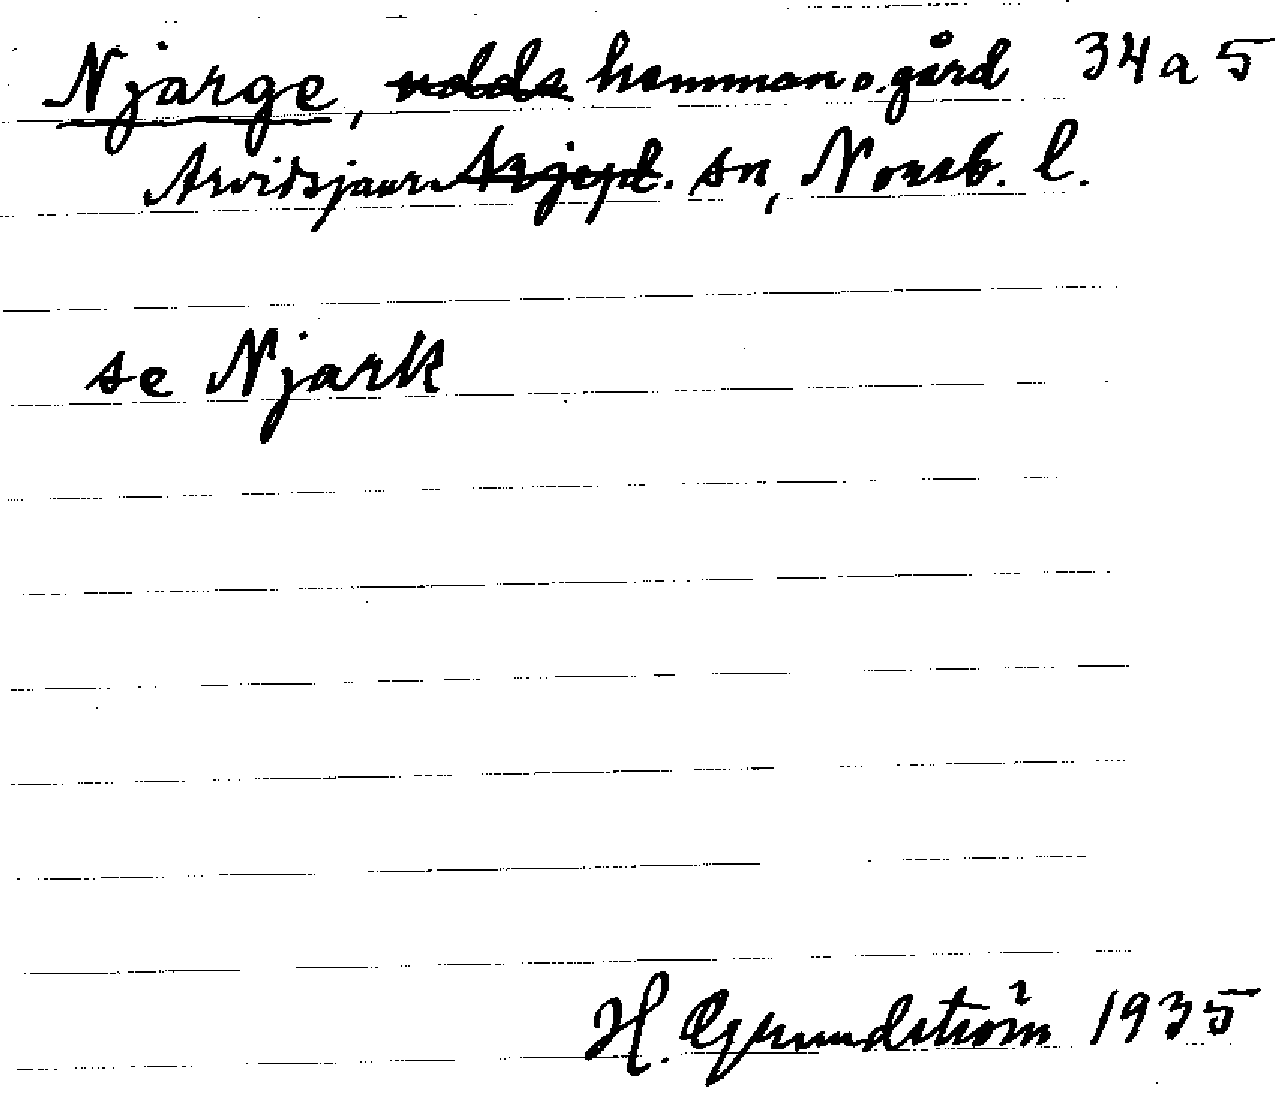 Njarge, udda hemman o. gård 34 a 5
Arvidsjaurs Arjepl. sn, Norrb. l.
se Njark
H. Grundström 1935